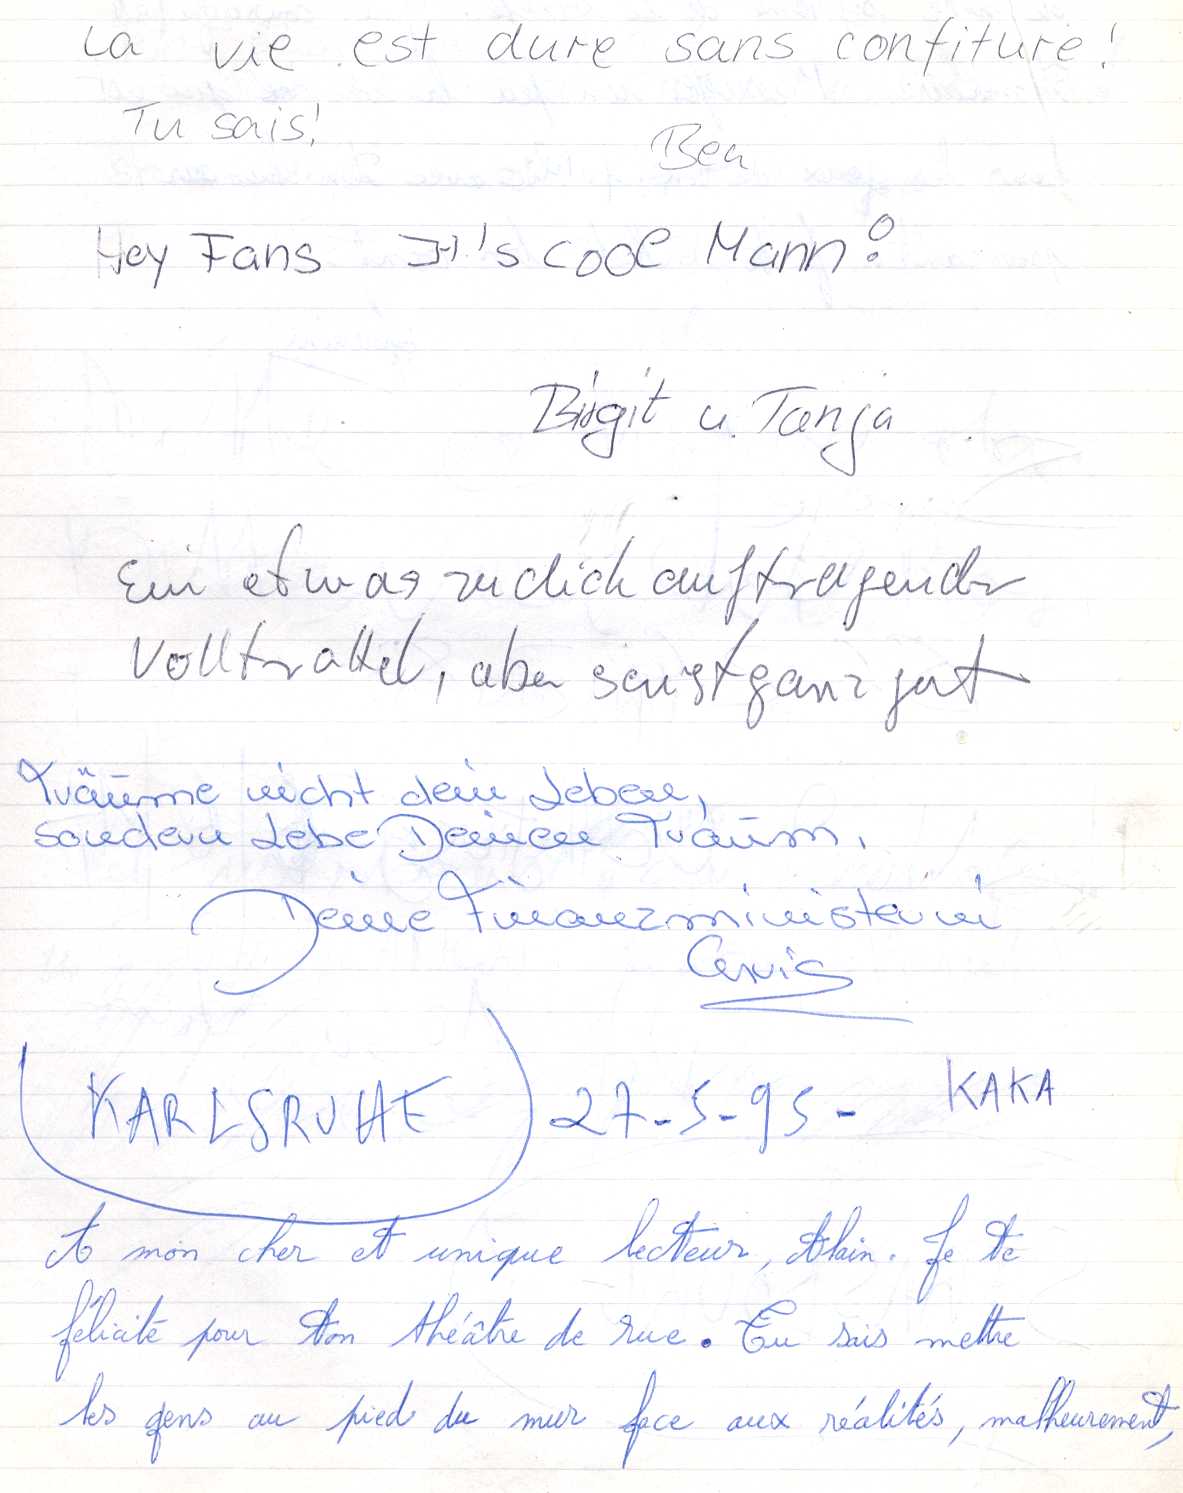 La vie est dure sans confiture!
Tu sais!
Bea
Hey Fans It's cool Mann!
Birgit u. Tanja
Ein etwas zu dick auftragender
Volltrottel, aber sonst ganz gut
Träume nicht dein Leben,
sondern Lebe Deinen Traum.
Deine Finanzministerin
KARLSRUHE 27-5-95- KAKA
A mon cher et unique lecteur, Alain. Je te
félicite pour ton théâtre de rue. Tu sais mettre
les gens au pied du mur face aux réalités, malheurement,